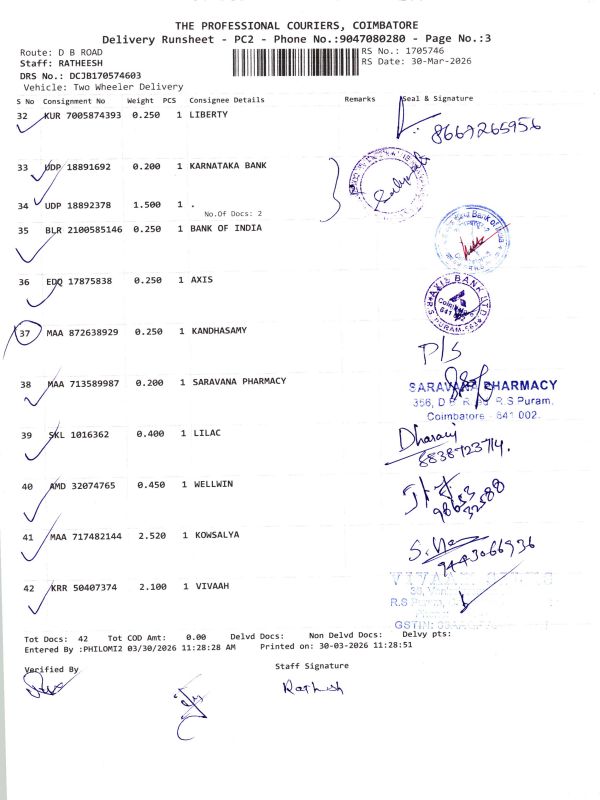 THE PROFESSIONAL COURIERS, COIMBATORE
Delivery Runsheet - PC2 - Phone No.:9047080280 - Page No.:3
Route: D B ROAD
RS No.: 1705746
Staff: RATHEESH
RS Date: 30-Mar-2026
DRS No.: DCJB170574603
Vehicle: Two Wheeler Delivery
S No Consignment No Weight PCS Consignee Details Remarks Seal & Signature
32 KUR 7005874393 0.250 1 LIBERTY
8669265956
33 UDP 18891692 0.200 1 KARNATAKA BANK
34 UDP 18892378 1.500 1 .
No.Of Docs: 2
35 BLR 2100585146 0.250 1 BANK OF INDIA
36 EDQ 17875838 0.250 1 AXIS
AXIS BANK LTD
R.S PURAM
37 MAA 872638929 0.250 1 KANDHASAMY
P/S
38 MAA 713589987 0.200 1 SARAVANA PHARMACY
SARAVANA PHARMACY
356, D B R.S Puram,
Coimbatore - 641 002.
39 SKL 1016362 0.400 1 LILAC
Dharani
8838723714.
40 AMD 32074765 0.450 1 WELLWIN
41 MAA 717482144 2.520 1 KOWSALYA
9443066936
42 KRR 50407374 2.100 1 VIVAAH
R.S
GSTIN:
Tot Docs: 42 Tot COD Amt: 0.00 Delvd Docs: Non Delvd Docs: Delvy pts:
Entered By :PHILOMI2 03/30/2026 11:28:28 AM Printed on: 30-03-2026 11:28:51
Verified By
Staff Signature
Rathish